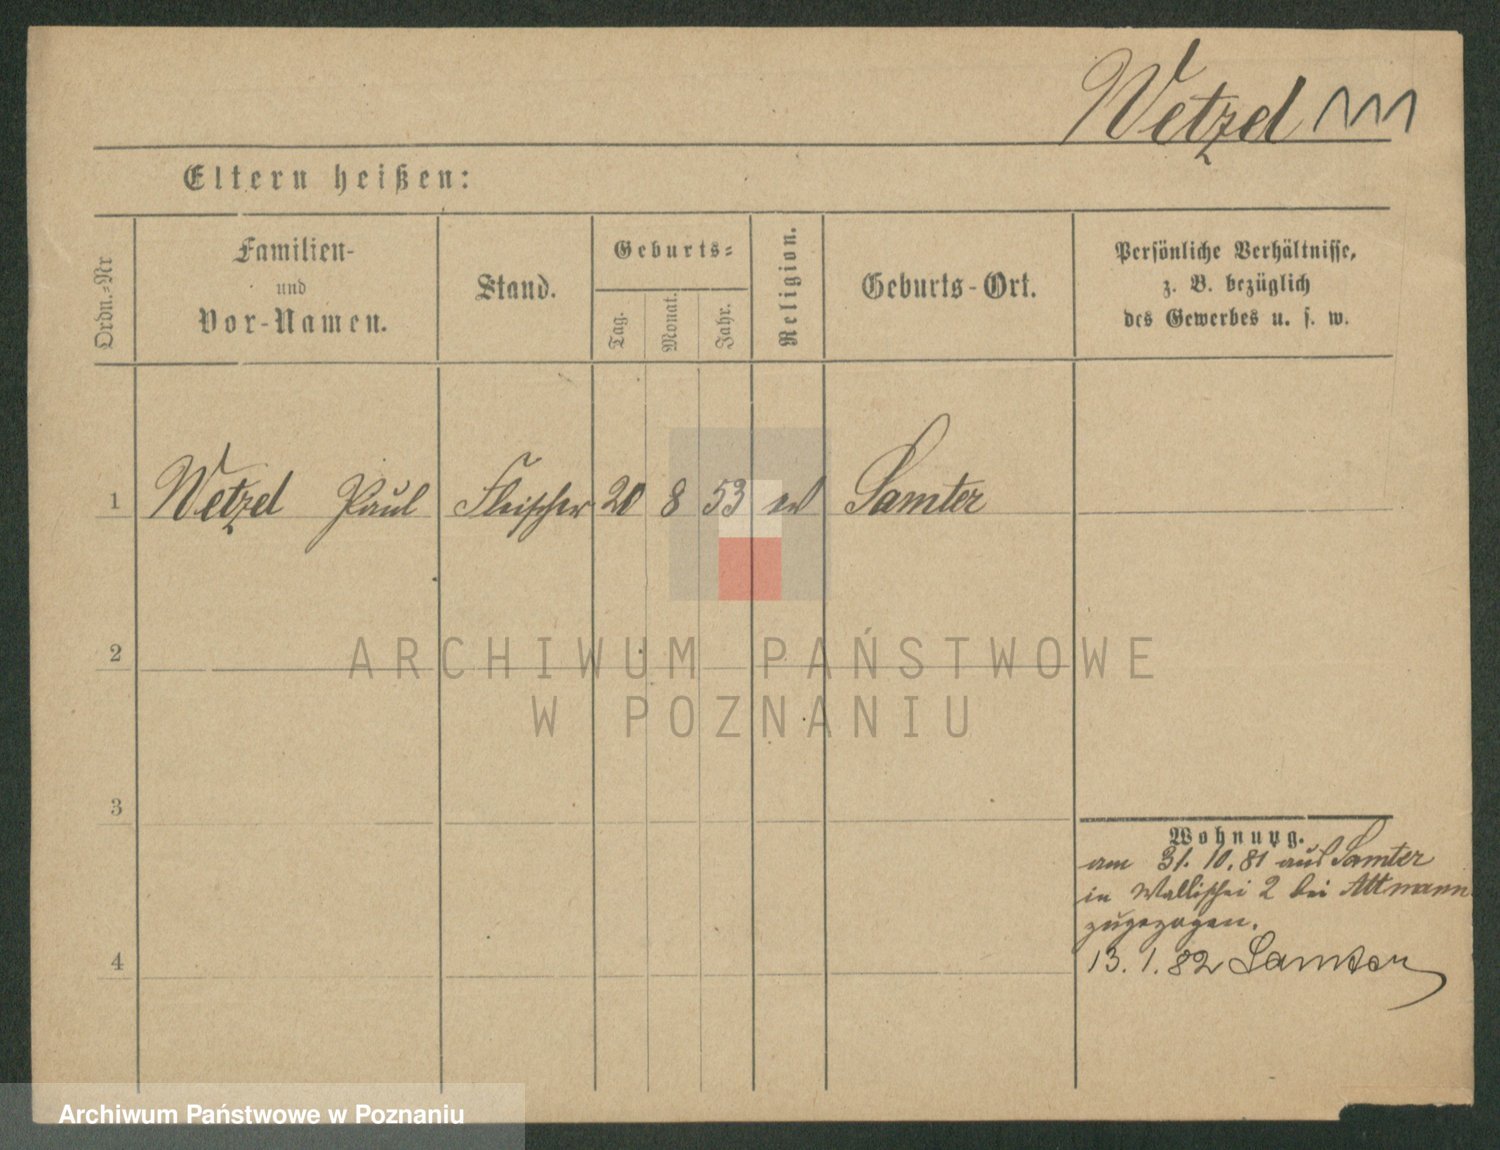 Wetzel
Eltern heißen:
Ordn.-Nr
Familien-
und
Vor-Namen.
Stand.
Geburts-
Tag.
Monat.
Jahr.
Religion.
Geburts-Ort.
Persönliche Verhältnisse,
z. B. bezüglich
des Gewerbes u. s. w.
1 Wetzel Paul Fleischer 20 8 53 ev Samter
2
ARCHIWUM PAŃSTWOWE
W POZNANIU
3
Wohnung.
am 31. 10. 81 aus Samter
in Wallischei 2 bei Attmann
zugezogen.
4
13. 1. 82 Samter
Archiwum Państwowe w Poznaniu